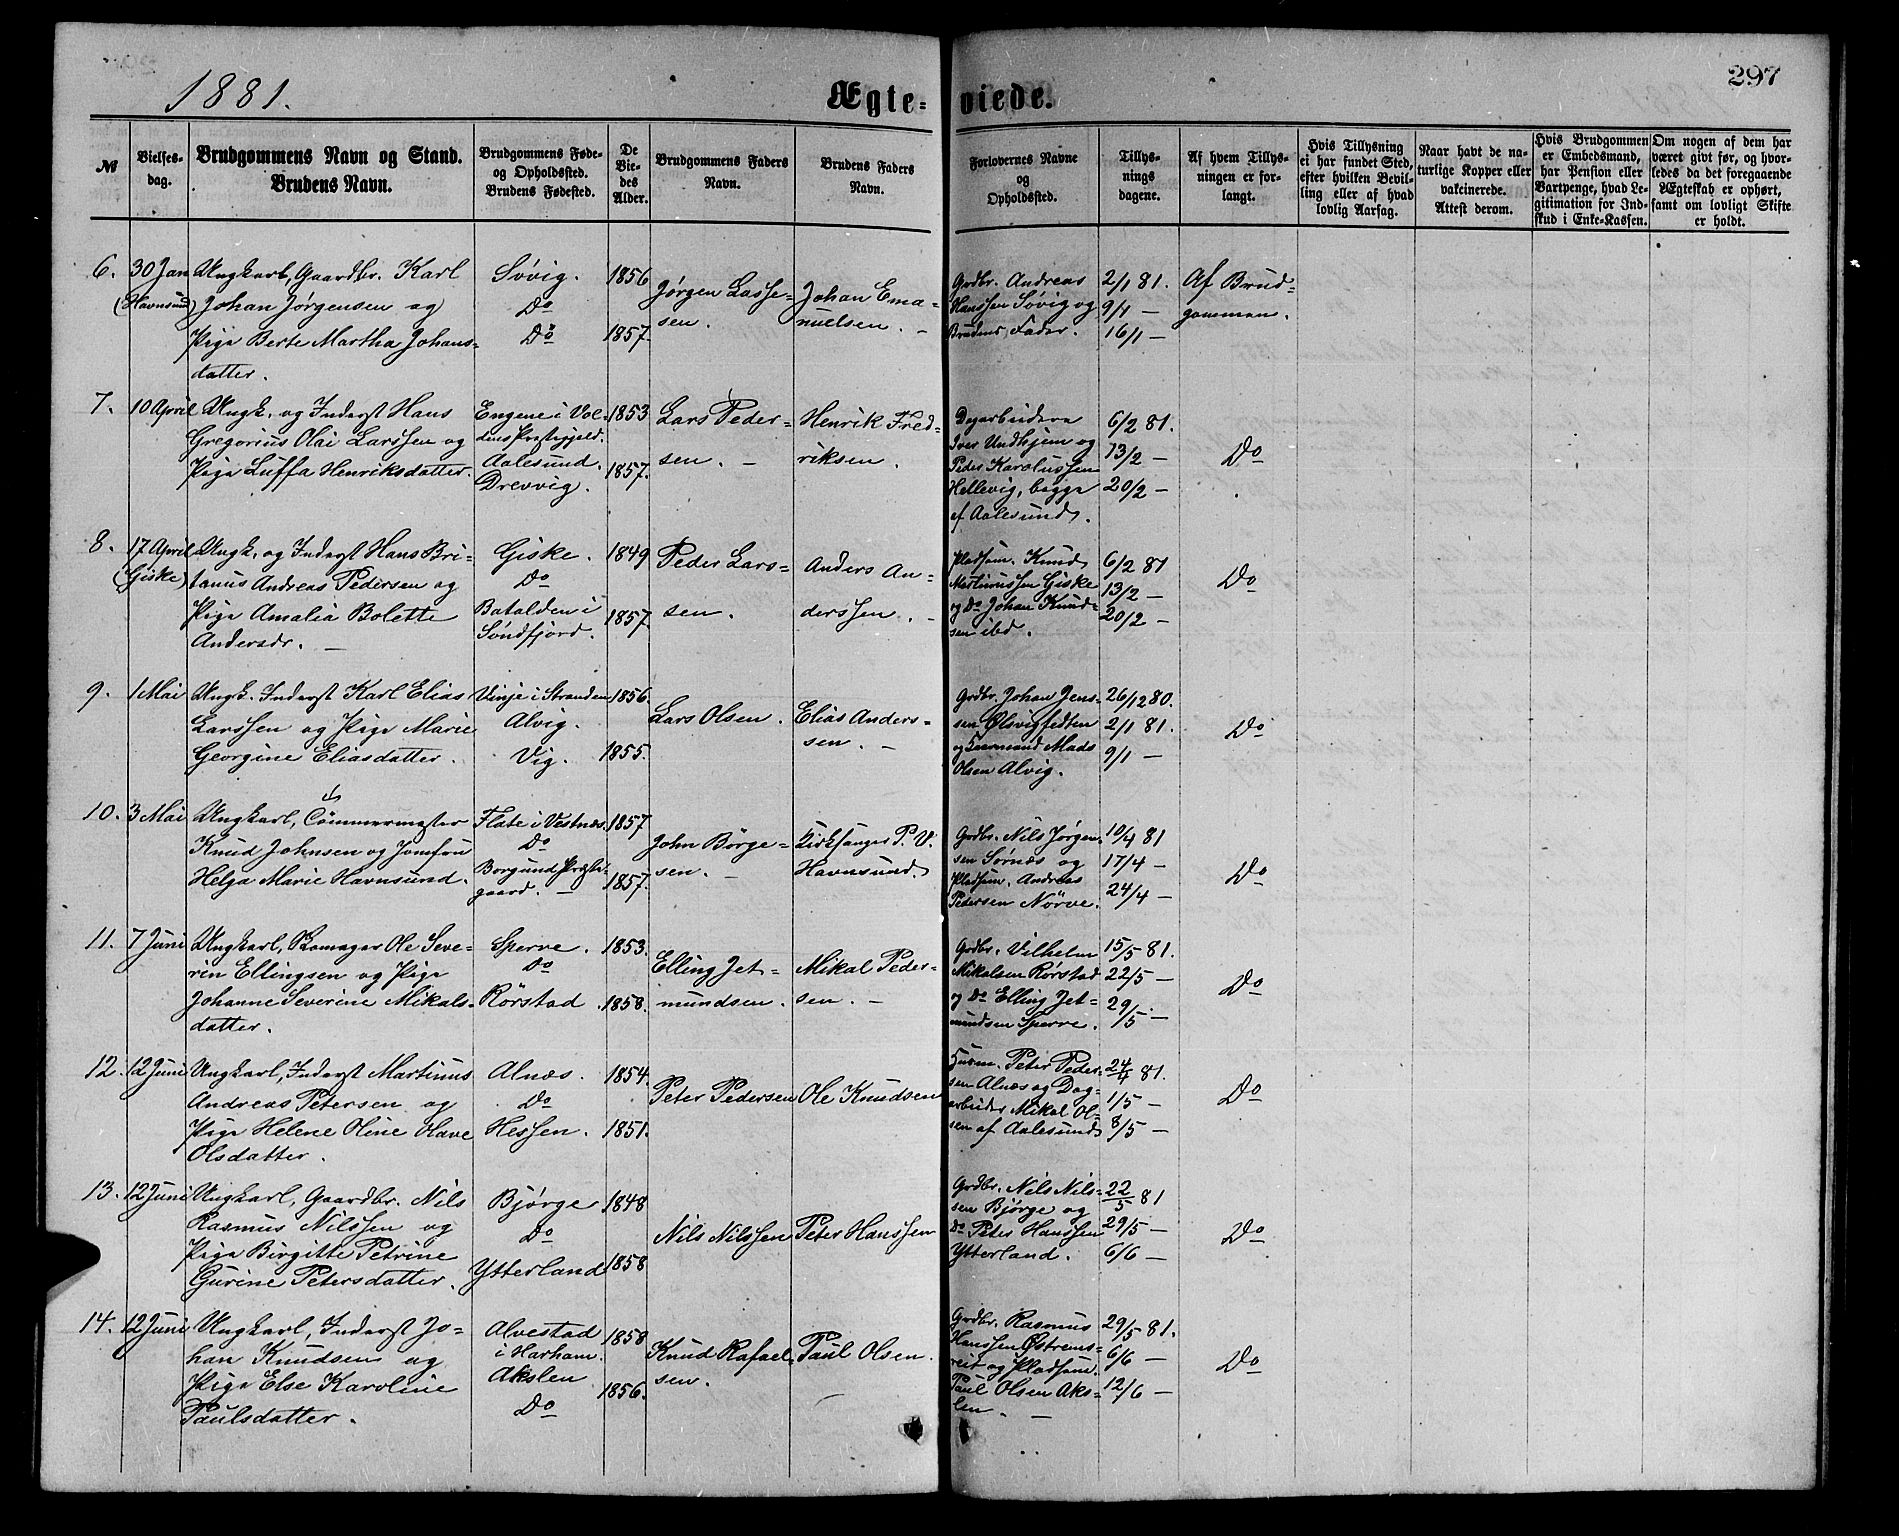 1881.
Ægte-
viede.
297
№
Vielses-
dag.
Brudgommens Navn og Stand.
Brudens Navn.
Brudgommens Føde-
og Opholdssted.
Brudens Fødested.
De
Vie-
des
Alder.
Brudgommens Faders
Navn.
Brudens Faders
Navn.
Forlovernes Navne
og
Opholdssted.
Tillys-
nings
dagene.
Af hvem Tillys-
ningen er for-
langt.
Hvis Tillysning
ei har fundet Sted,
efter hvilken Bevil-
ling eller af hvad
lovlig Aarsag.
Naar havt de na-
turlige Kopper eller
vakcinerede.
Attest derom.
Hvis Brudgommen
er Embedsmand,
har Pension eller
Vartpenge, hvad Le-
gitimation for Ind-
skud i Enke-Kassen.
Om nogen af dem har
været givt før, og hvor-
ledes da det foregaaende
Ægteskab er ophørt,
samt om lovligt Skifte
er holdt.
6.
30 Jan
(Havnsund)
Ungkarl, Gaardbr. Karl
Johan Jørgensen og
Pige Berte Martha Johans-
datter.
Søvig.
Do
Do
1856
1857.
Jørgen Lasse-
sen.
Johan Ema-
nuelsen. -
Grdbr. Andreas
Hanssen Søvig og
Brudens Fader.
2/1 81.
9/1 -
16/1 -
Af Brud-
gommen.
7.
10 April
Ungk. og Inderst Hans
Gregorius Olai Larssen og
Pige Luffa Henriksdatter.
Engene i Vol-
dens Præstegjeld.
Aalesund.
Drevvig.
1853
1857.
Lars Peder-
sen. -
Henrik Fred-
riksen.
Dagarbeidere
Iver Undhjem og
Peder Karolussen
Hellevig, begge
af Aalesund.
6/2 81.
13/2 -
20/2 -
Do
8.
17 April
(Giske)
Ungk. og Inderst Hans Bri-
tanus Andreas Pedersen og
Pige Amalia Bolette
Andersdr. -
Giske.
Do
Batalden i
Søndfjord.
1849
1857.
Peder Lars-
sen.
Anders An-
derssen. -
Pladsm. Knud
Martinussen Giske
og Do Johan Knud-
sen ibd.
6/2 81
13/2 -
20/2 -
Do
9.
1 Mai
Ungk. Inderst Karl Elias
Larssen og Pige Marie
Georgine Eliasdatter.
Vinje i Stranden
Alvig.
Vig.
1856.
1855.
Lars Olsen.
Elias Anders-
sen. -
Grdbr. Johan Jens-
sen Olsvigfedten
og Huusmand Mads
Olsen Alvig.
26/12 80.
2/1 81.
9/1 -
Do
10.
3 Mai
Ungkarl, Tømmermester
Knud Johnsen og Jomfru
Helga Marie Havnsund.
Flate i Vestnæs.
Do
Borgund Præste-
gaard. -
1857
1857.
John Børge-
sen. -
Kirksanger P. V.
Havnsund.
Grdbr. Nils Jørgen-
sen Sørnæs og
Pladsm. Andreas
Pedersen Nørve.
10/4 81
17/4 -
24/4 -
Do
11.
7 Juni
Ungkarl, Skomager Ole Seve-
rin Ellingsen og Pige
Johanne Severine Mikals-
datter.
Sperre.
Do
Rørstad
1853.
1858.
Elling Jet-
mundsen.
Mikal Peder-
sen. -
Grdbr. Vilhelm
Mikalsen Rørstad
og Do Elling Jet-
mundsen Sperre.
15/5 81.
22/5 -
29/5 -
Do
12.
12 Juni
Ungkarl, Inderst Martinus
Andreas Petersen og
Pige Helene Oline Have
Olsdatter.
Alnæs.
Do
Hessen.
1854.
1851.
Peter Pedersen
Ole Knudsen
Huusm. Peter Peder-
sen Alnæs og Dag-
arbeider Mikal Ol-
sen af Aalesund
24/4 81.
1/5 -
8/5 -
Do
13.
12 Juni
Ungkarl, Gaardbr. Nils
Rasmus Nilssen og
Pige Birgitte Petrine
Gurine Petersdatter.
Bjørge
Do
Ytterland
1848
1858
Nils Nilssen
Peter Hanssen
Grdbr. Nils Nils-
sen Bjørge og
Do Peter Hanssen
Ytterland.
22/5 81
29/5 -
6/6 -
Do
14.
12 Juni
Ungkarl, Inderst Jo-
han Knudsen og
Pige Else Karoline
Paulsdatter.
Alvestad
i Harham.
Akslen
Do
1858
1856.
Knud Rafael-
sen.
Paul Olsen.
-
Grdbr. Rasmus
Hanssen Østrems-
reit og Pladsm.
Paul Olsen Aks-
len. -
29/5 81.
6/6 -
12/6 -
Do